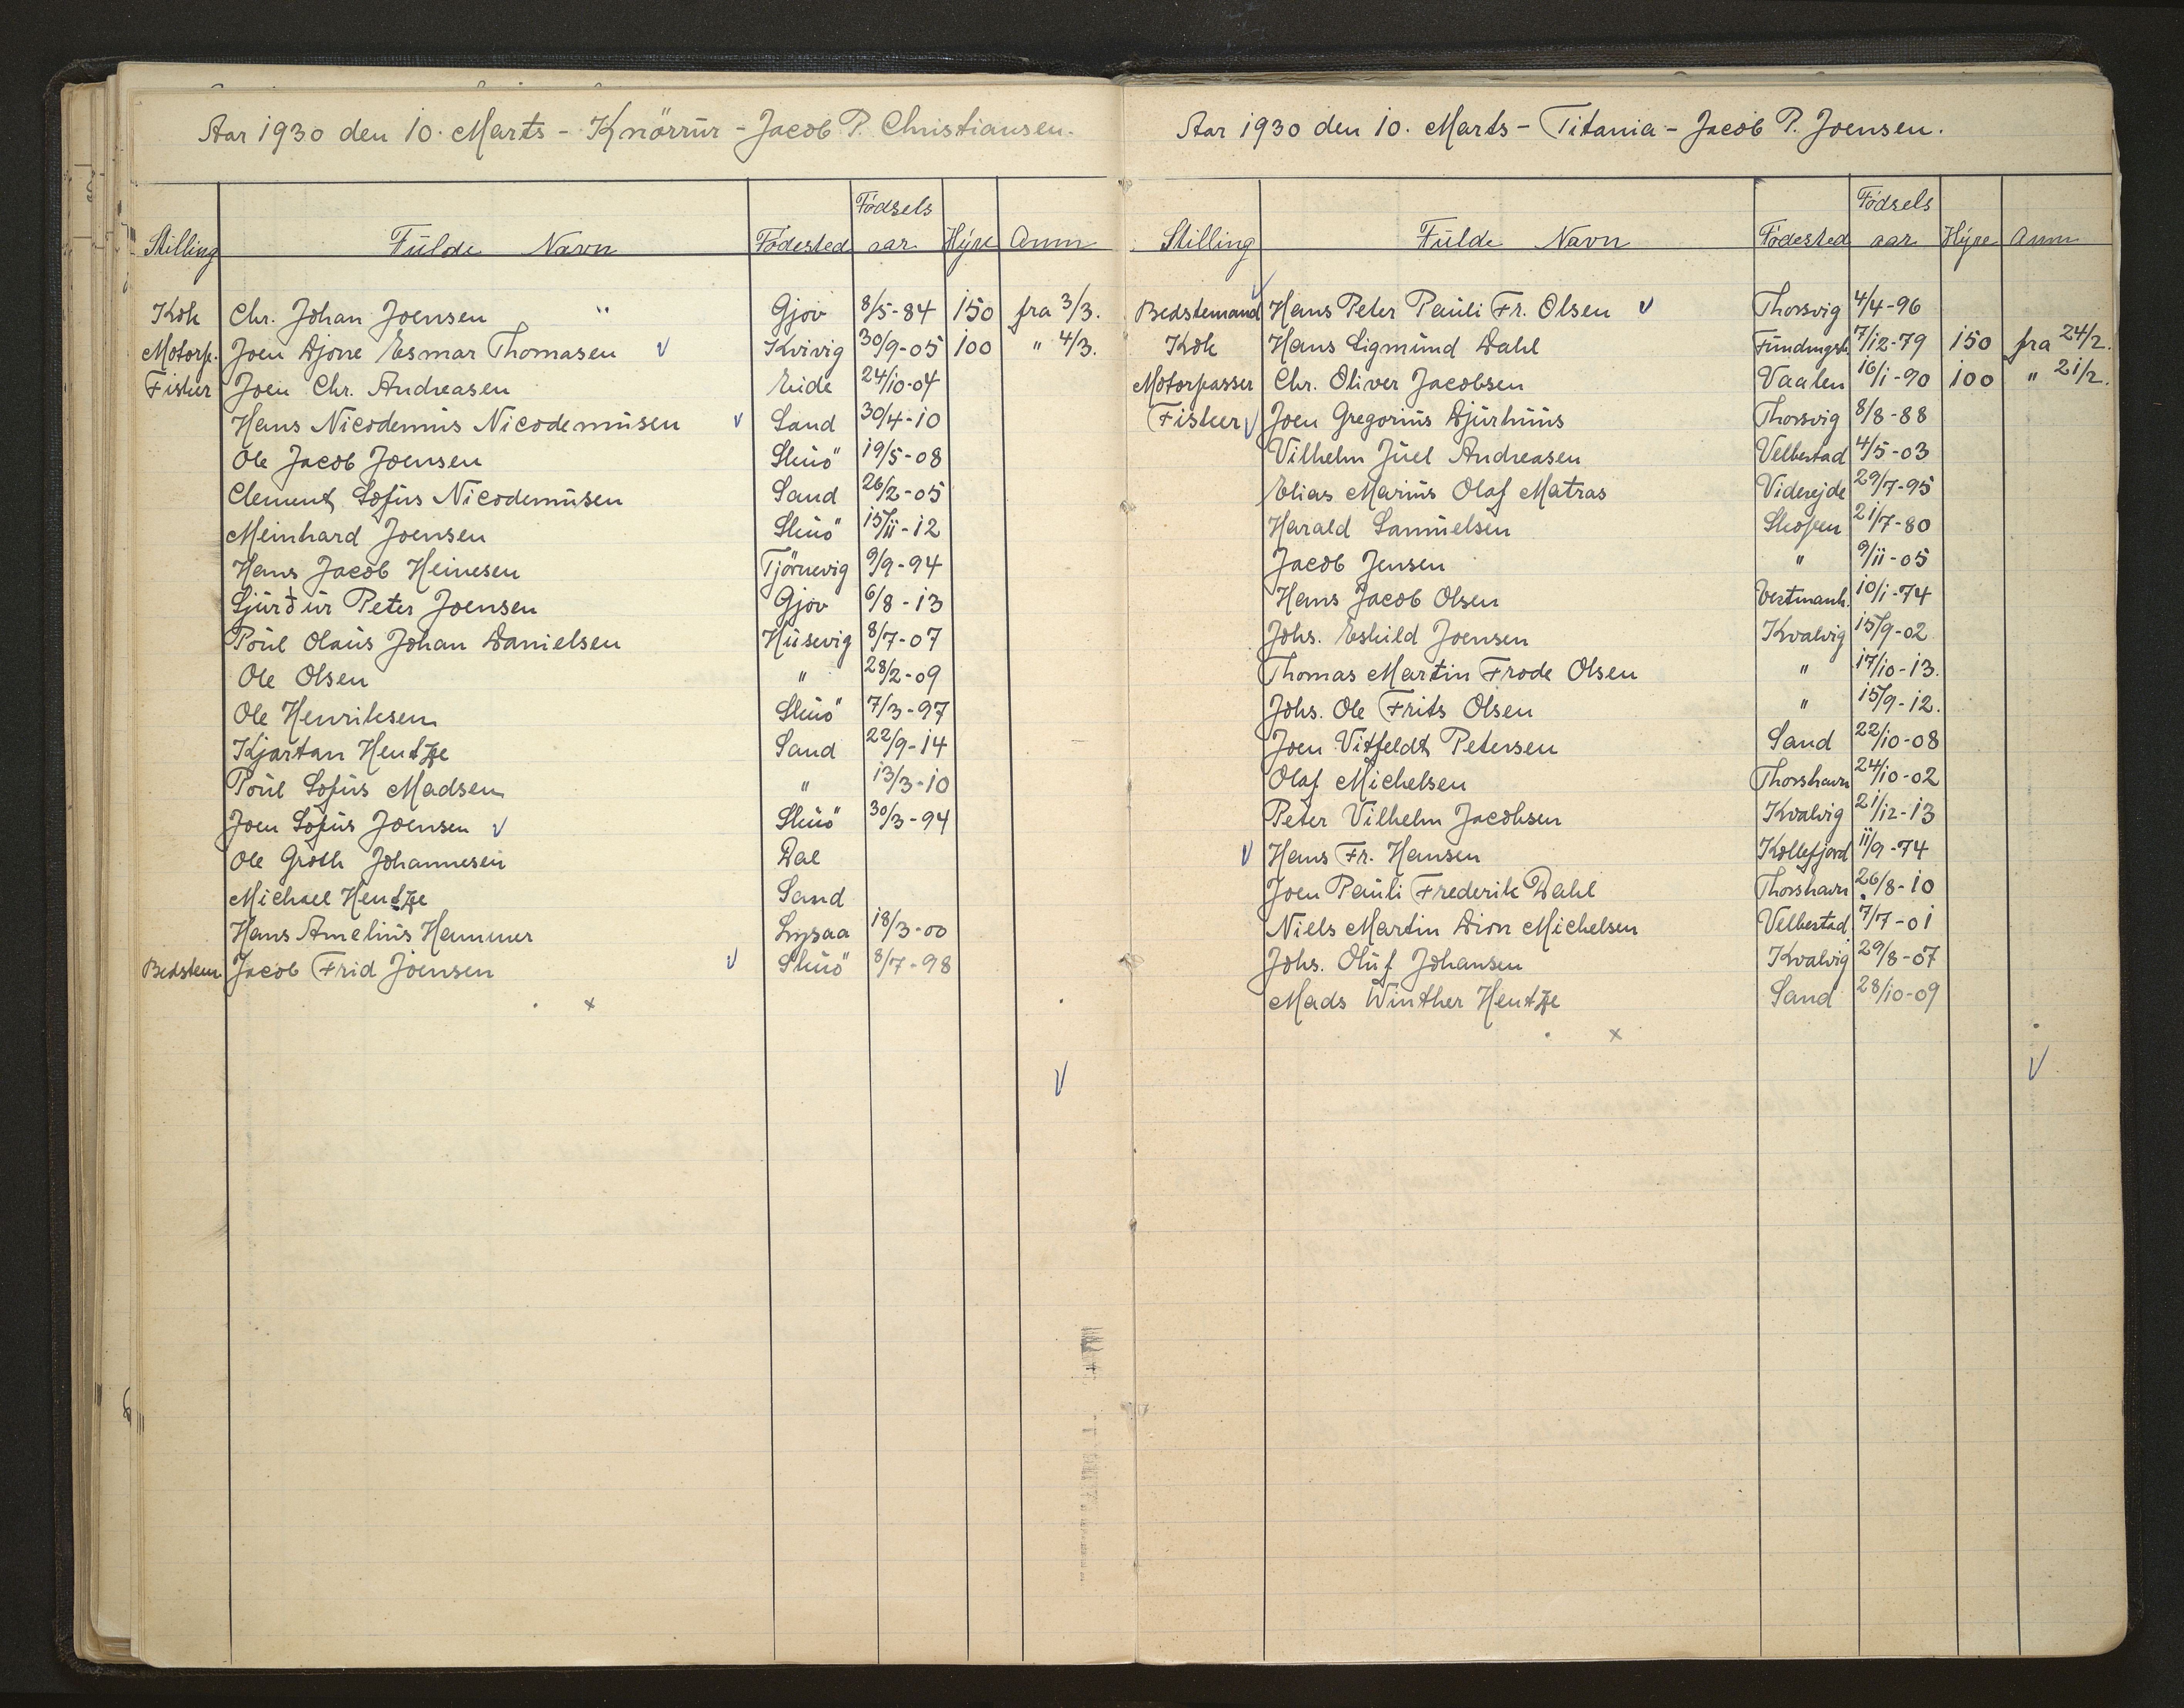 Aar 1930 den 10. Marts - Knörrur - Jacob P. Christiansen.
Stilling Fulde Navn Fødested Fødsels aar Hyre Anm
Kok Chr. Johan Joensen " Gjov 8/5-84 150 fra 3/3.
Motorp. Joen Djone Esmar Thomasen V Kvivig 30/9-05 100 " 4/3.
Fisker Joen Chr. Andreasen Eide 24/10-04
Hans Nicodemus Nicodemusen V Sand 30/4-10
Ole Jacob Joensen Skuö 19/5-08
Clement Sofus Nicodemusen Sand 26/2-05
Meinhard Joensen Skuö 15/11-12
Hans Jacob Heinesen Tjörnevig 9/9-94
Sjúrður Peter Joensen Gjov 6/8-13
Poul Olaus Johan Danielsen Husevig 8/7-07
Ole Olsen " 28/2-09
Ole Henriksen Skuö 7/3-97
Kjartan Hentze Sand 22/9-14
Poul Sofus Madsen " 13/3-10
Joen Sofus Joensen V Skuö 30/3-94
Ole Groth Johannesen Dal
Michael Hentze Sand
Hans Amelius Hammer Lopsaa 18/3-00
Bedstem. Jacob Frid Joensen V Skuö 8/7-98
x
V
Aar 1930 den 10. Marts - Titania - Jacob P. Joensen.
Stilling Fulde Navn Fødested Fødsels aar Hyre Anm
Bedstemand V Hans Peter Pauli Fr. Olsen V Thorsvig 4/4-96
Kok Hans Sigmund Dahl Fundingsb. 7/12-79 150 fra 24/2.
Motorpasser Chr. Oliver Jacobsen Vaalen 16/1-90 100 " 21/2.
Fisker V Joen Gregorius Djurhuus Thorsvig 8/8-88
Vilhelm Juel Andreasen Velbestad 4/5-03
Elias Marius Olaf Matras Viderejde 29/7-95
Harald Samuelsen Skopen 21/7-80
Jacob Jensen " 9/11-05
Hans Jacob Olsen Vestmanh. 10/1-74
Johs. Eskild Joensen Kvalvig 15/9-02
Thomas Martin Frode Olsen " 17/10-13.
Johs. Ole Frits Olsen " 15/9-12.
Joen Vitfeldt Petersen Sand 22/10-08
Olaf Michelsen Thorshavn 24/10-02
Peter Vilhelm Jacobsen Kvalvig 21/12-13
V Hans Fr. Hansen Kollefjord 11/9-74
Joen Pauli Frederik Dahl Thorshavn 26/8-10
Niels Martin Dion Michelsen Velbestad 7/7-01
Johs. Oluf Johansen Kvalvig 29/8-07
Mads Winther Hentze Sand 28/10-09
x
V